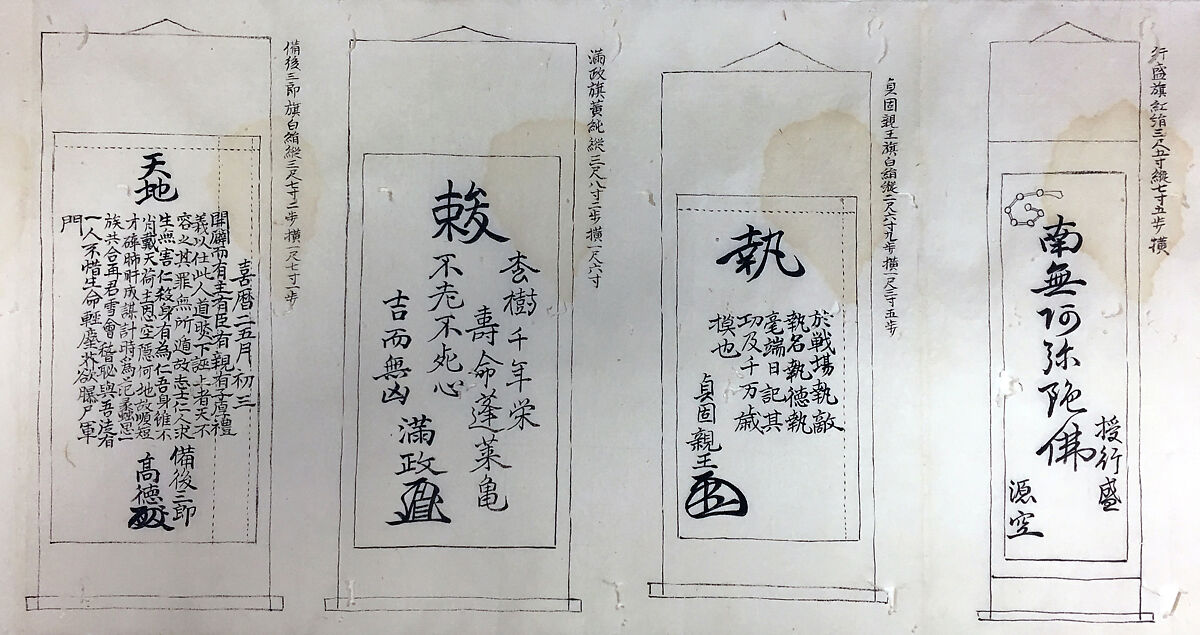 行盛旗紅絹三尺五寸縱七寸五步横
南無阿弥陀佛
授行盛
源空
貞固親王旗白絹縱二尺六寸九步横一尺三寸五步
執
於戦場執敵
執名執德執
毫端日記其
功及千万歳
摸也
貞固親王
滿政旗黄純縱三尺八寸二步横一尺六寸
李樹千年栄
壽命蓬莱亀
不老不死心
吉而無凶
滿政
備後三郎旗白絹縱三尺七寸二步横一尺七寸一步
天地
喜暦二五月初三
開闢而有主有臣有親有子厚禮
義以仕此人道誤下誣上者天不
容之其罪無所遁故志士仁人求
生無害仁殺身有為仁吾身雖不
肖戴天荷主恩空隠何地故順短
才碎肺肝成謀計時為
族共合再君雪會稽恥與吾
一人不惜生命輕塵芥欲曝尸軍
門
備後三郎
高德